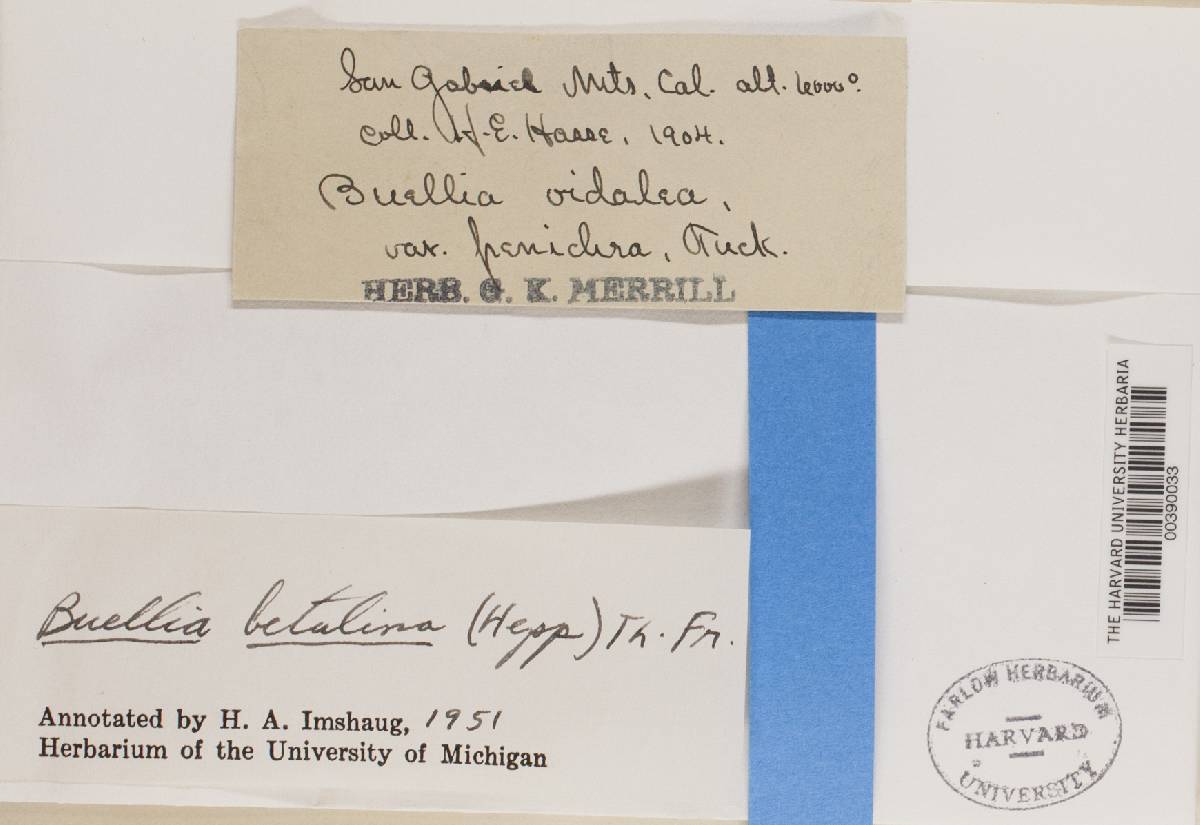 San Gabriel Mts, Cal. alt. 6000°.
coll. H.E. Hasse, 1904.
Buellia vidalea,
var. penichra, Tuck.
HERB. G. K. MERRILL
THE HARVARD UNIVERSITY HERBARIA
00390033
Buellia betulina (Hepp) Th. Fr.
Annotated by H. A. Imshaug, 1951
Herbarium of the University of Michigan
FARLOW HERBARIUM
HARVARD
UNIVERSITY